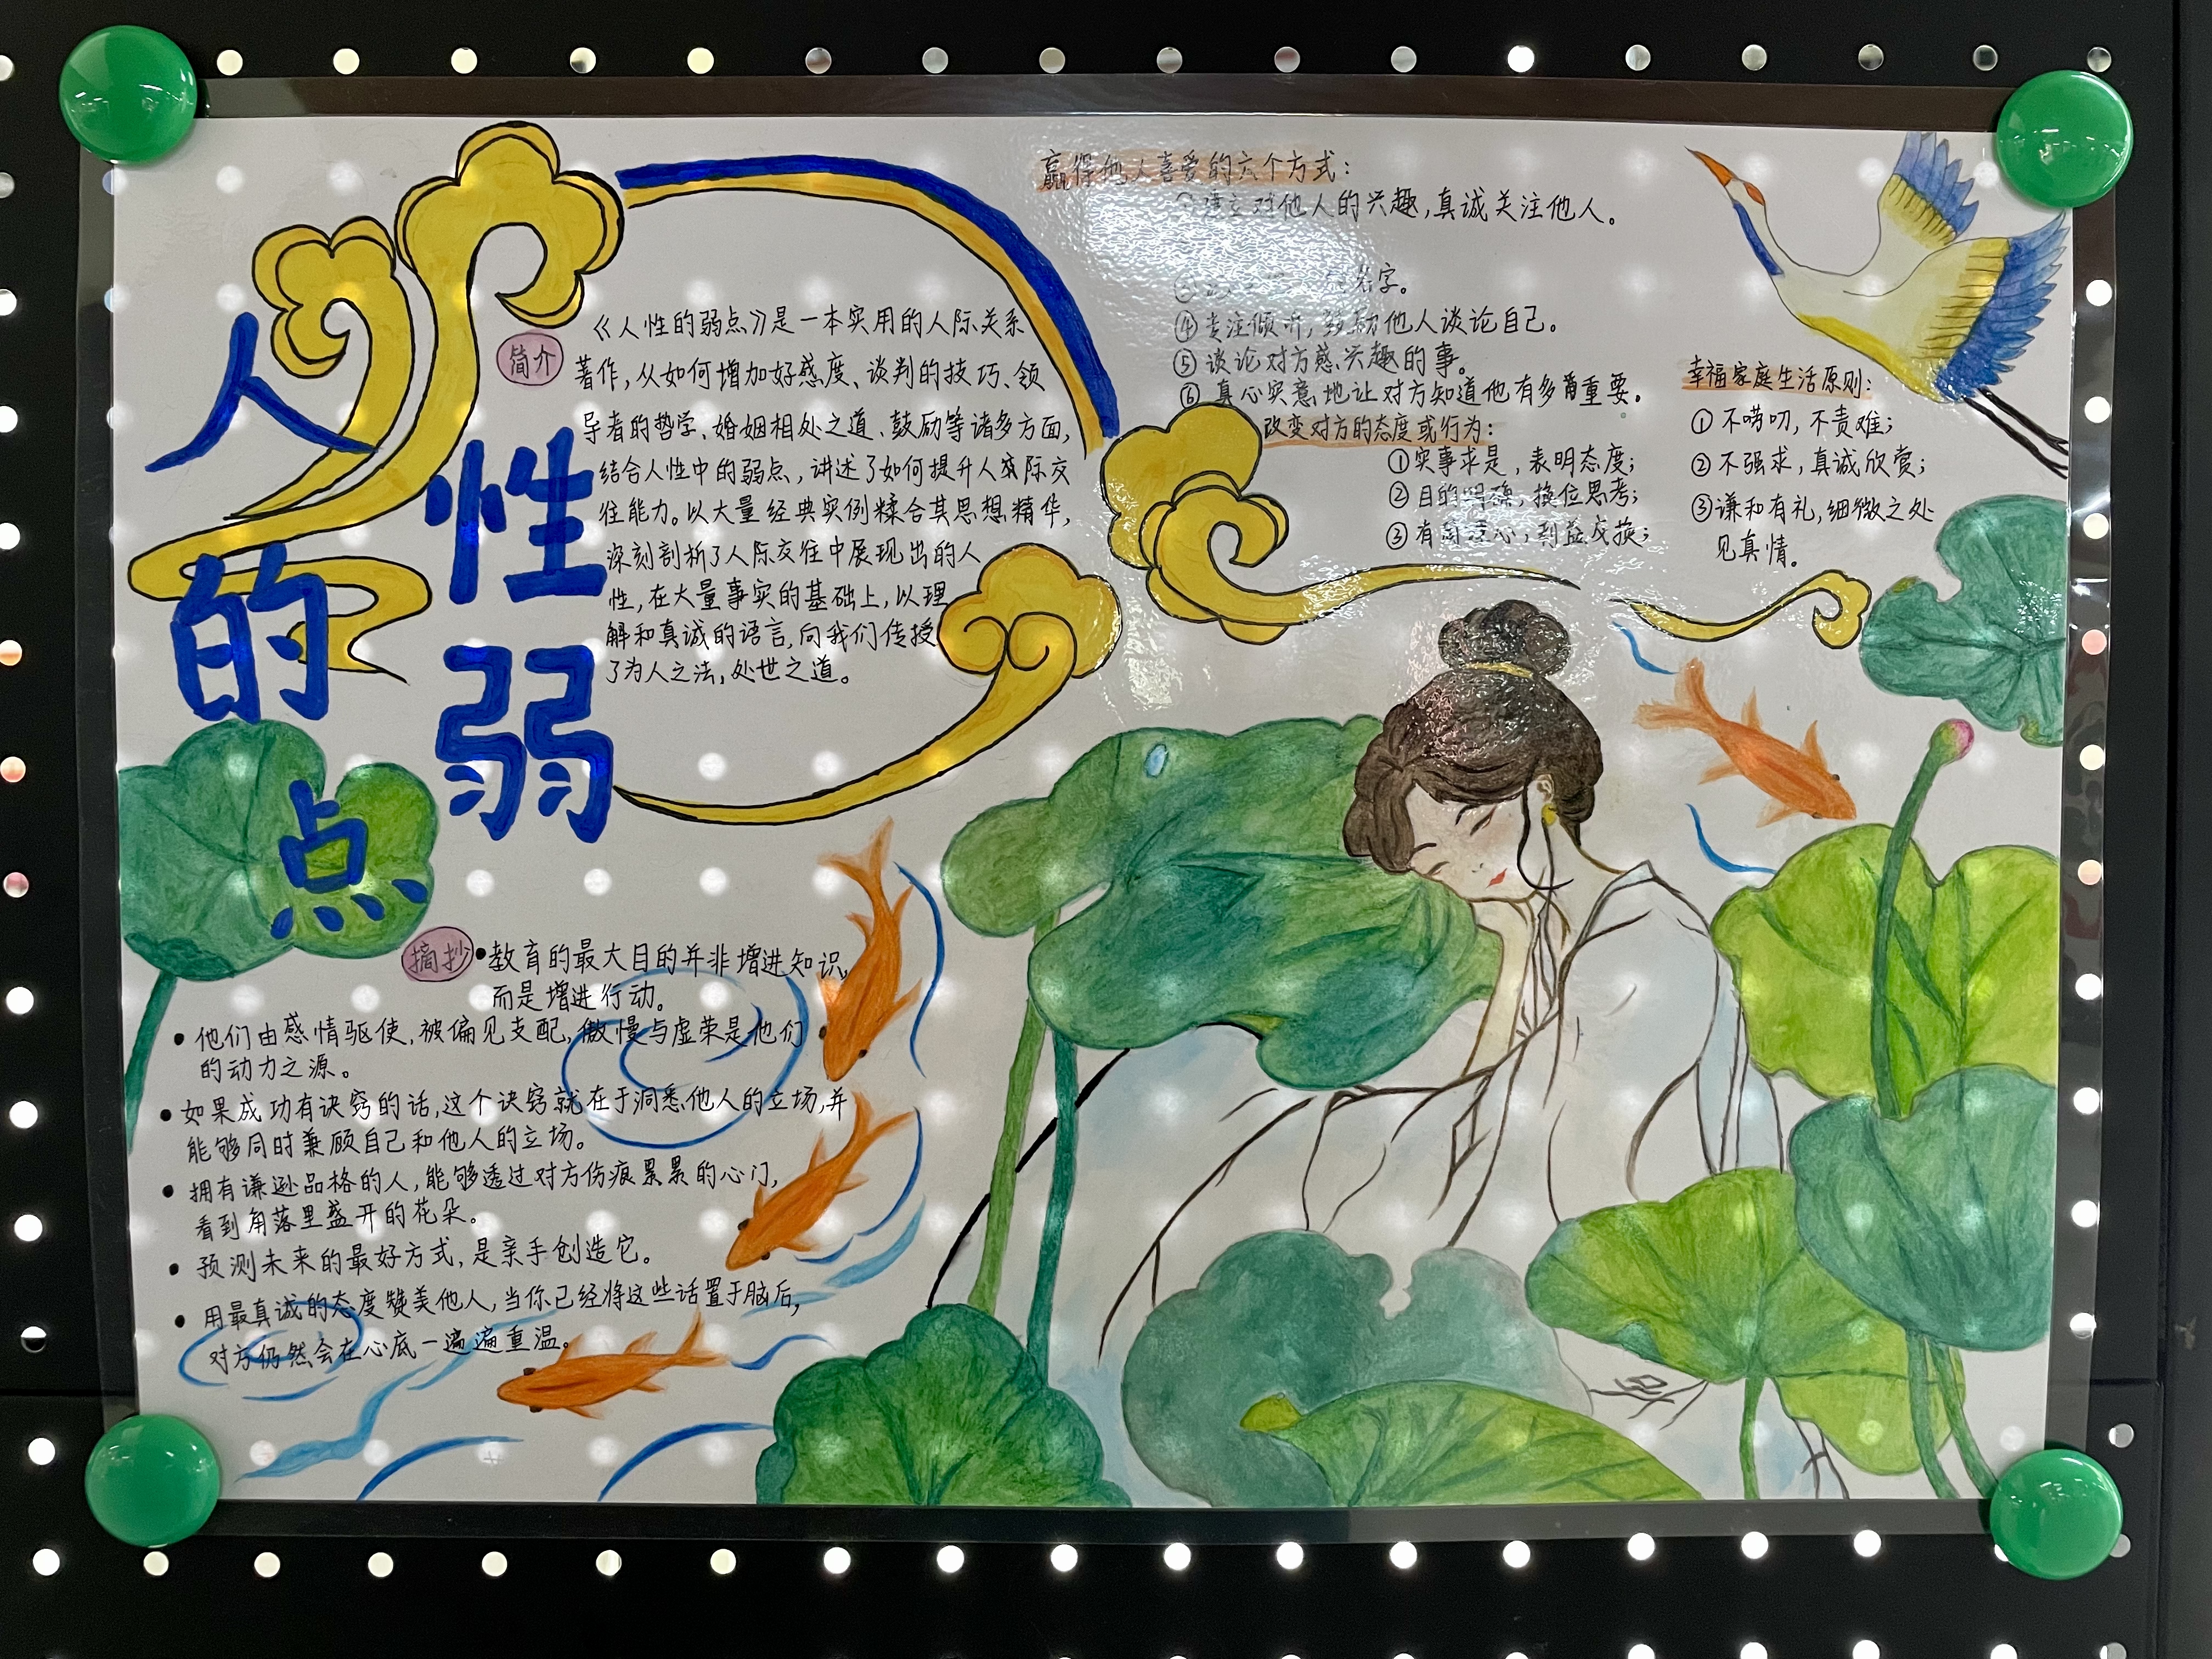 人性的弱点
简介
《人性的弱点》是一本实用的人际关系
著作,从如何增加好感度、谈判的技巧、领
导者的哲学、婚姻相处之道、鼓励等诸多方面,
结合人性中的弱点,讲述了如何提升人际交
往能力。以大量经典实例糅合其思想精华,
深刻剖析了人际交往中展现出的人
性,在大量事实的基础上,以理
解和真诚的语言,向我们传授
了为人之法,处世之道。
摘抄
•教育的最大目的并非增进知识,
而是增进行动。
•他们由感情驱使,被偏见支配,傲慢与虚荣是他们
的动力之源。
•如果成功有诀窍的话,这个诀窍就在于洞悉他人的立场,并
能够同时兼顾自己和他人的立场。
•拥有谦逊品格的人,能够透过对方伤痕累累的心门,
看到角落里盛开的花朵。
•预测未来的最好方式,是亲手创造它。
•用最真诚的态度赞美他人,当你已经将这些话置于脑后,
对方仍然会在心底一遍遍重温。
赢得他人喜爱的六个方式:
建立对他人的兴趣,真诚关注他人。
名字。
④专注倾听,鼓励他人谈论自己。
⑤谈论对方感兴趣的事。
⑥真心实意地让对方知道他有多重要。
改变对方的态度或行为:
①实事求是,表明态度;
②目的明确,换位思考;
③有同理心,利益交换;
幸福家庭生活原则:
①不唠叨,不责难;
②不强求,真诚欣赏;
③谦和有礼,细微之处
见真情。